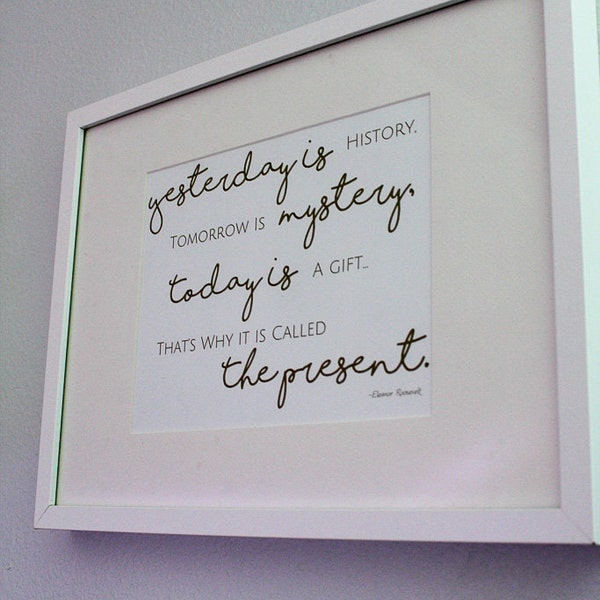 yesterday is HISTORY.
TOMORROW IS mystery,
today is A GIFT...
THAT'S WHY IT IS CALLED
the present.
~Eleanor Roosevelt